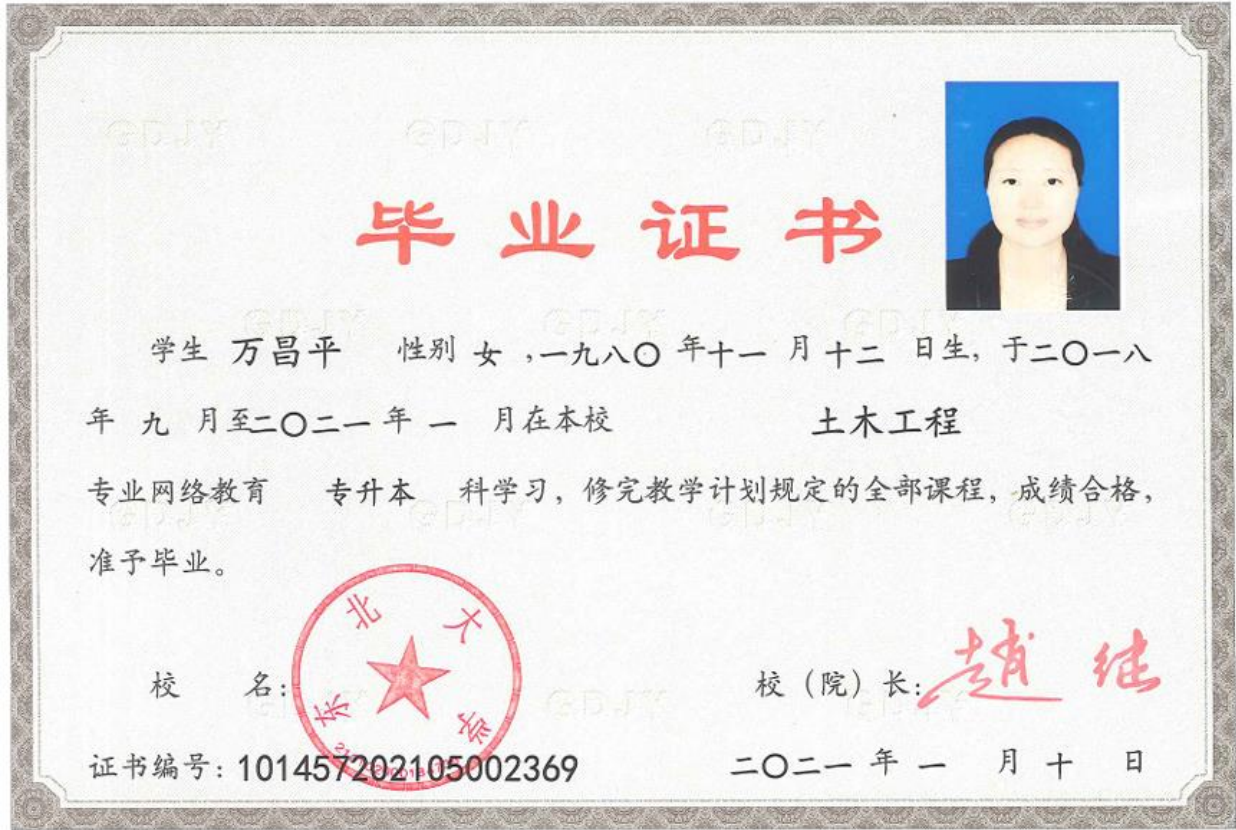 毕业证书
学生 万昌平 性别 女 ,一九八〇 年十一 月 十二 日生，于二〇一八
年 九 月至二〇二一 年 一 月在本校 土木工程
专业网络教育 专升本 科学习，修完教学计划规定的全部课程，成绩合格，
准予毕业。
东北大学
校 名：
校（院）长：赵继
证书编号：101457202105002369
二〇二一 年 一 月 十 日